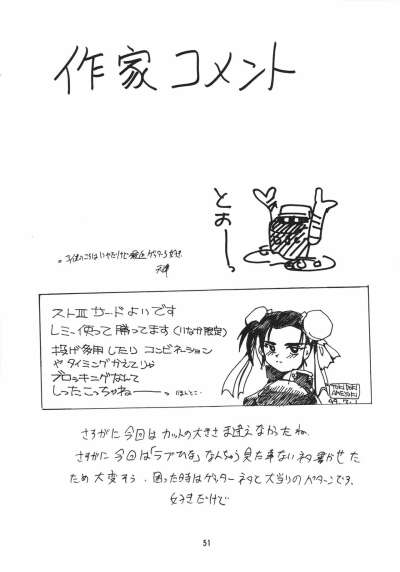 作家コメント
とおーっ
ストIIIサードよいです
レミー使って勝ってます(いなか限定)
投げ多用したり コンビネーション
やタイミングかえてりゃ
ブロッキングなんて
しったこっちゃねー
さすがに今回はカットの大きさま違えなかったね。
さすがに今回は「ラブひな」なんちゅう見た事ないネタ書かせた
ため大変そう。困った時はゲッターネタと大当りのパターンです。
好きだけど
51